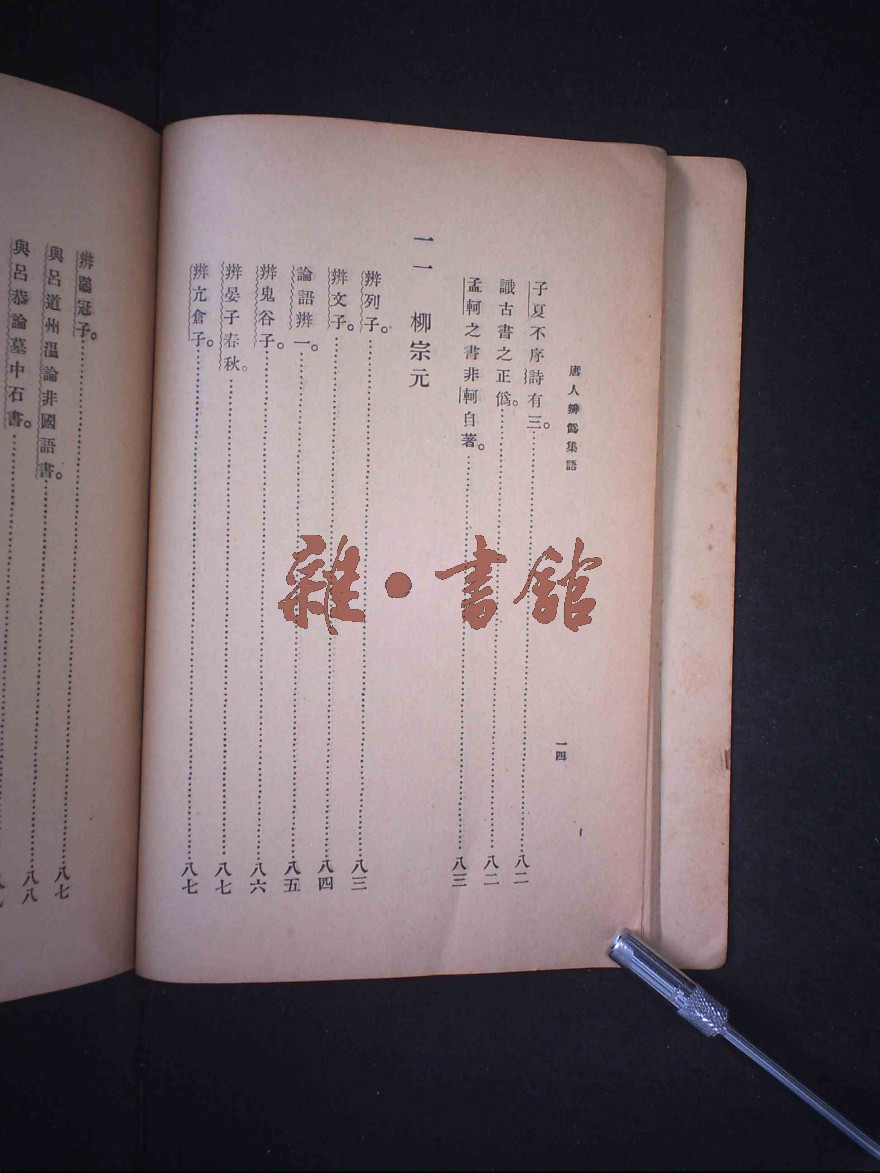 唐人辨僞集語
一四
子夏不序詩有三。……八二
識古書之正僞。……八二
孟軻之書非軻自著。……八三
一一 柳宗元
辨列子。……八三
辨文子。……八四
論語辨一。……八五
辨鬼谷子。……八六
辨晏子春秋。……八七
辨亢倉子。……八七
辨鶡冠子。……八七
與呂道州溫論非國語書。……八八
與呂恭論墓中石書。……
雜·書館